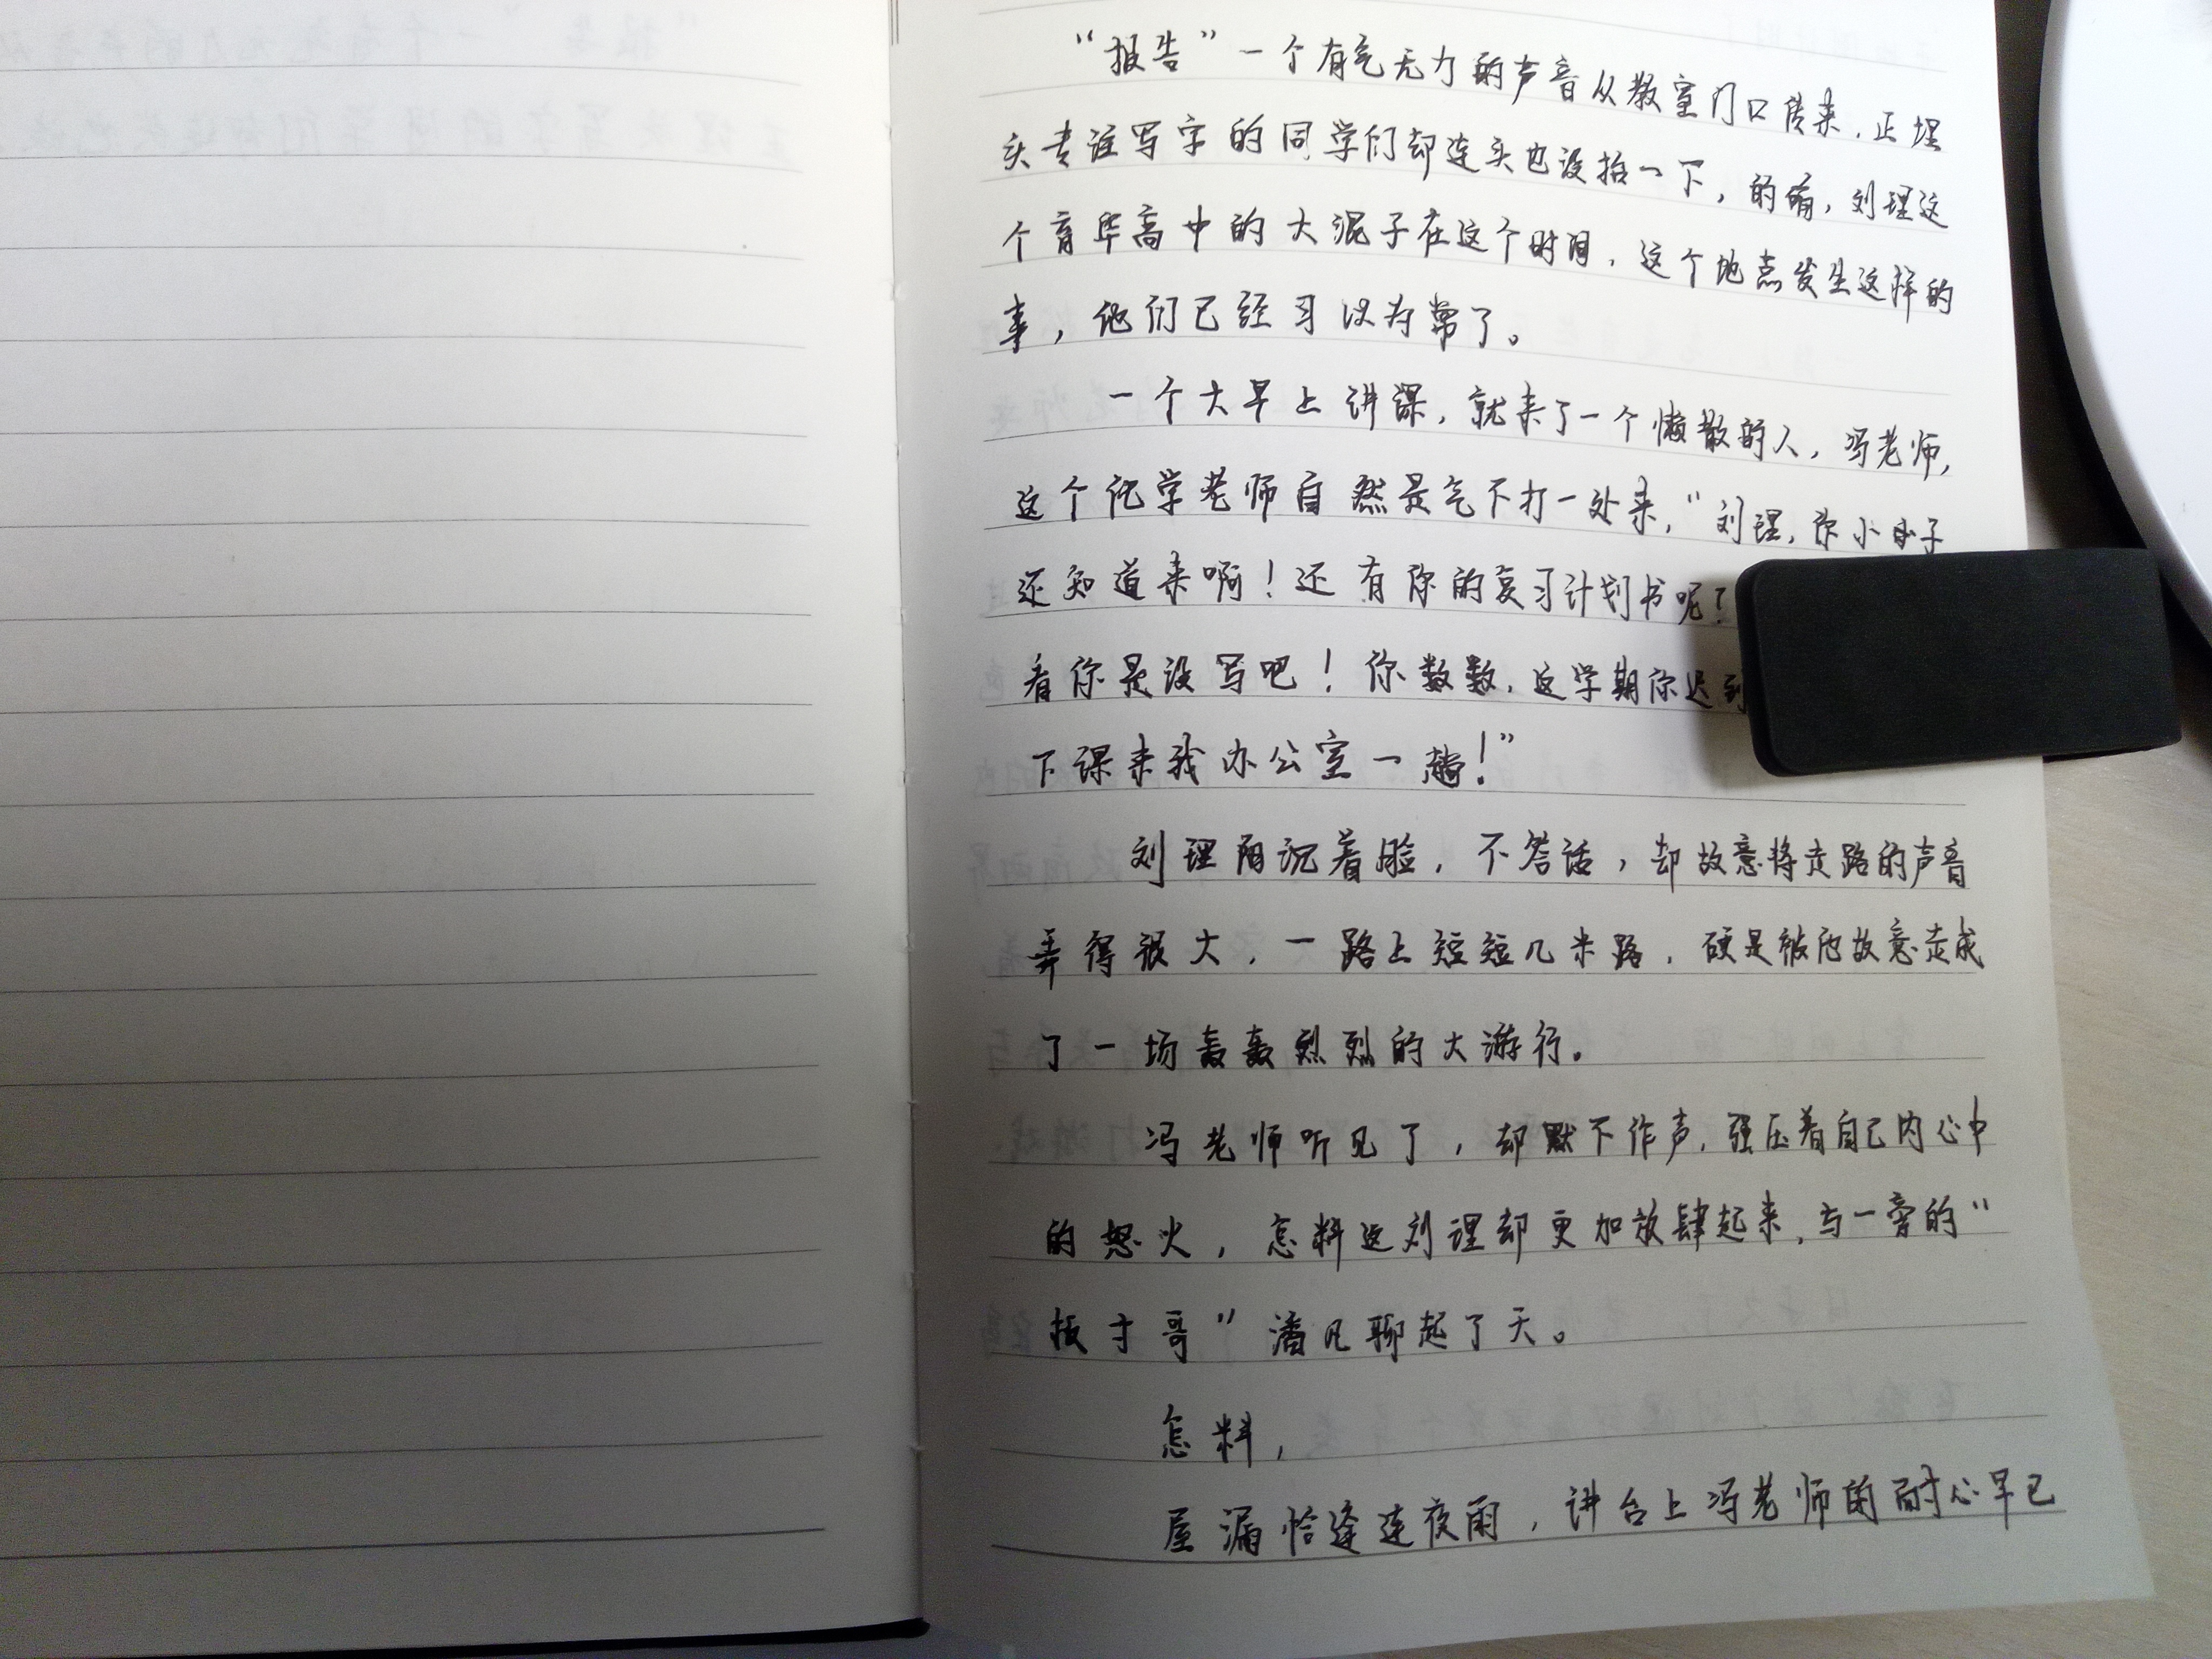 “报告”一个有气无力的声音从教室门口传来,正埋
头专注写字的同学们却连头也没抬一下,的确,刘理这
个育华高中的大混子在这个时间,这个地点发生这样的
事,他们已经习以为常了。
一个大早上讲课,就来了一个懒散的人,冯老师,
这个化学老师自然是气不打一处来,“刘理,你小子
还知道来啊!还有你的复习计划书呢?
看你是没写吧!你数数,这学期你迟到
下课来我办公室一趟!”
刘理阴沉着脸,不答话,却故意将走路的声音
弄得很大,一路上短短几米路,硬是被他故意走成
了一场轰轰烈烈的大游行。
冯老师听见了,却默不作声,强压着自己内心中
的怒火,怎料这刘理却更加放肆起来,与一旁的“
板寸哥”潘凡聊起了天。
怎料,
屋漏恰逢连夜雨,讲台上冯老师的耐心早已